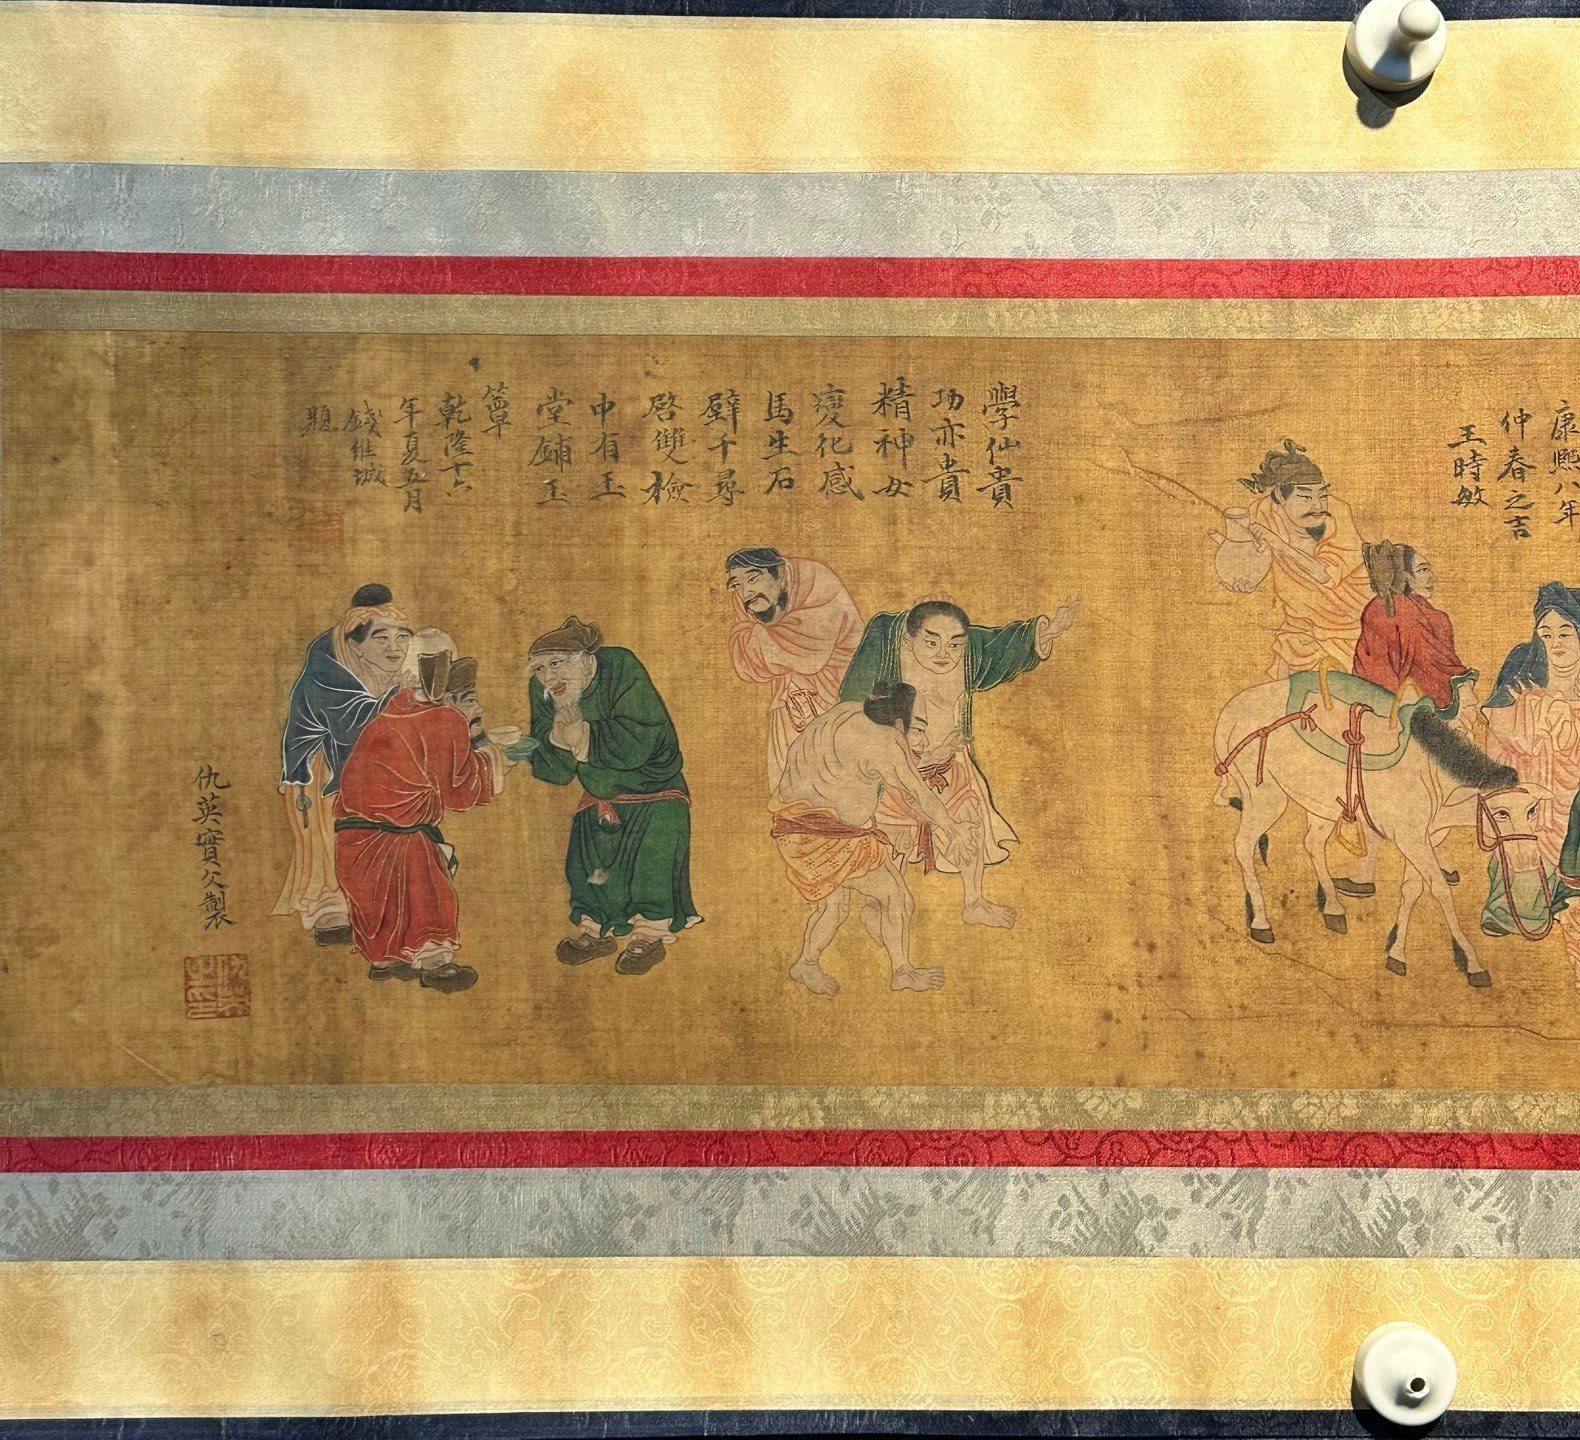 康熙八年
仲春之吉
王時敏
學仙貴
功亦貴
精神女
變化感
馬生石
壁千尋
啓雙檢
中有玉
堂鋪玉
簟
乾隆十六
年夏五月
錢維城
題
仇英實父製